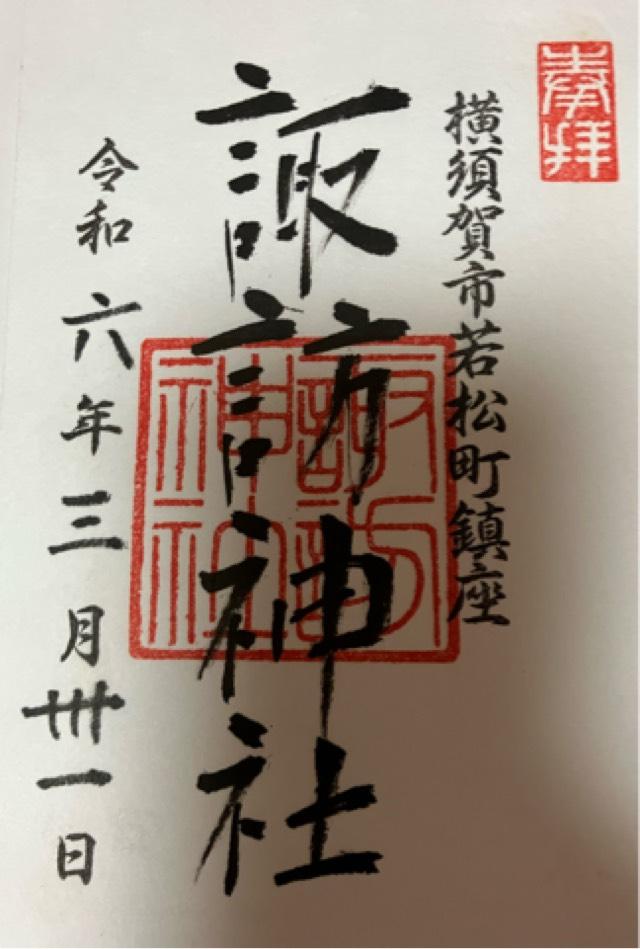 奉拝
横須賀市若松町鎮座
諏訪神社
諏訪神社
令和六年三月卅一日